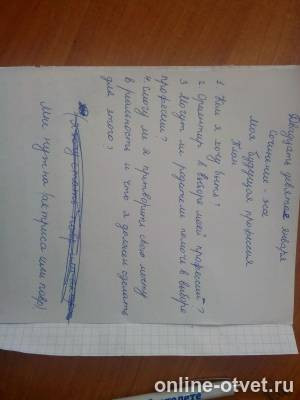 Двадцать девятое января
Сочинение - эссе
Моя будущая профессия
План
1 Кем я хочу быть?
2 Ориентир в выборе моей профессий?
3 Могут ли родители помочь в выборе
профессии?
4. Смогу ли я притворить свою мечту
в реальность и что я должен сделать
для этого?
Мне нужна актриса или повар)
online-otvet.ru